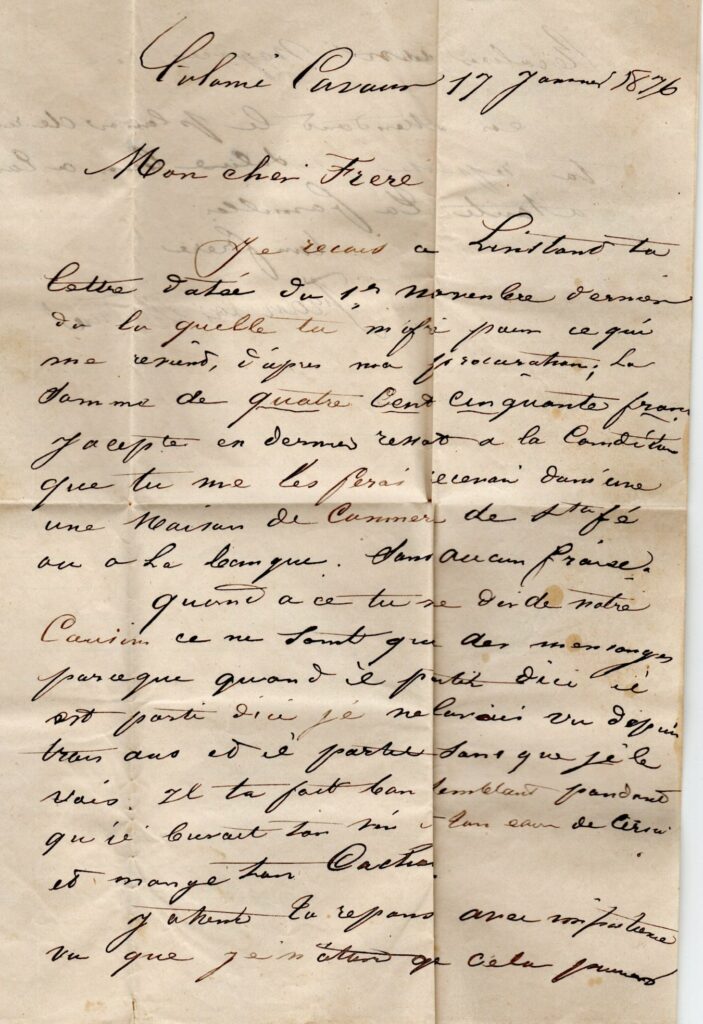 Colonie Cavour 17 Janvier 1876
Mon cher Frere
Je recais a Linstant ta
lettre datée du 1er novembre dernier
da la quelle tu pour ce qui
me revient, d'apres ma procuration, La
Somme de quatre Cent cinquante franc
J'acepte en dernier ressot a la Condition
que tu me les ferai recevair dans'une
une Maison de Commer de Sta fé
au a La banque. Sans aucun fraise.
quand a ce tu me di de notre
Causin ce ne Somt que des mensonges
parceque quand il partit dici il
est parti dici je nelavais vu depuis
trais ans et il partit Sans que je le
vais. Il ta fait bon Semblant pendant
qu'il buvait ton vin ton eau de
et mange ton
J'atent ta repons avec impatience
vu que je n'atend qe cela pour